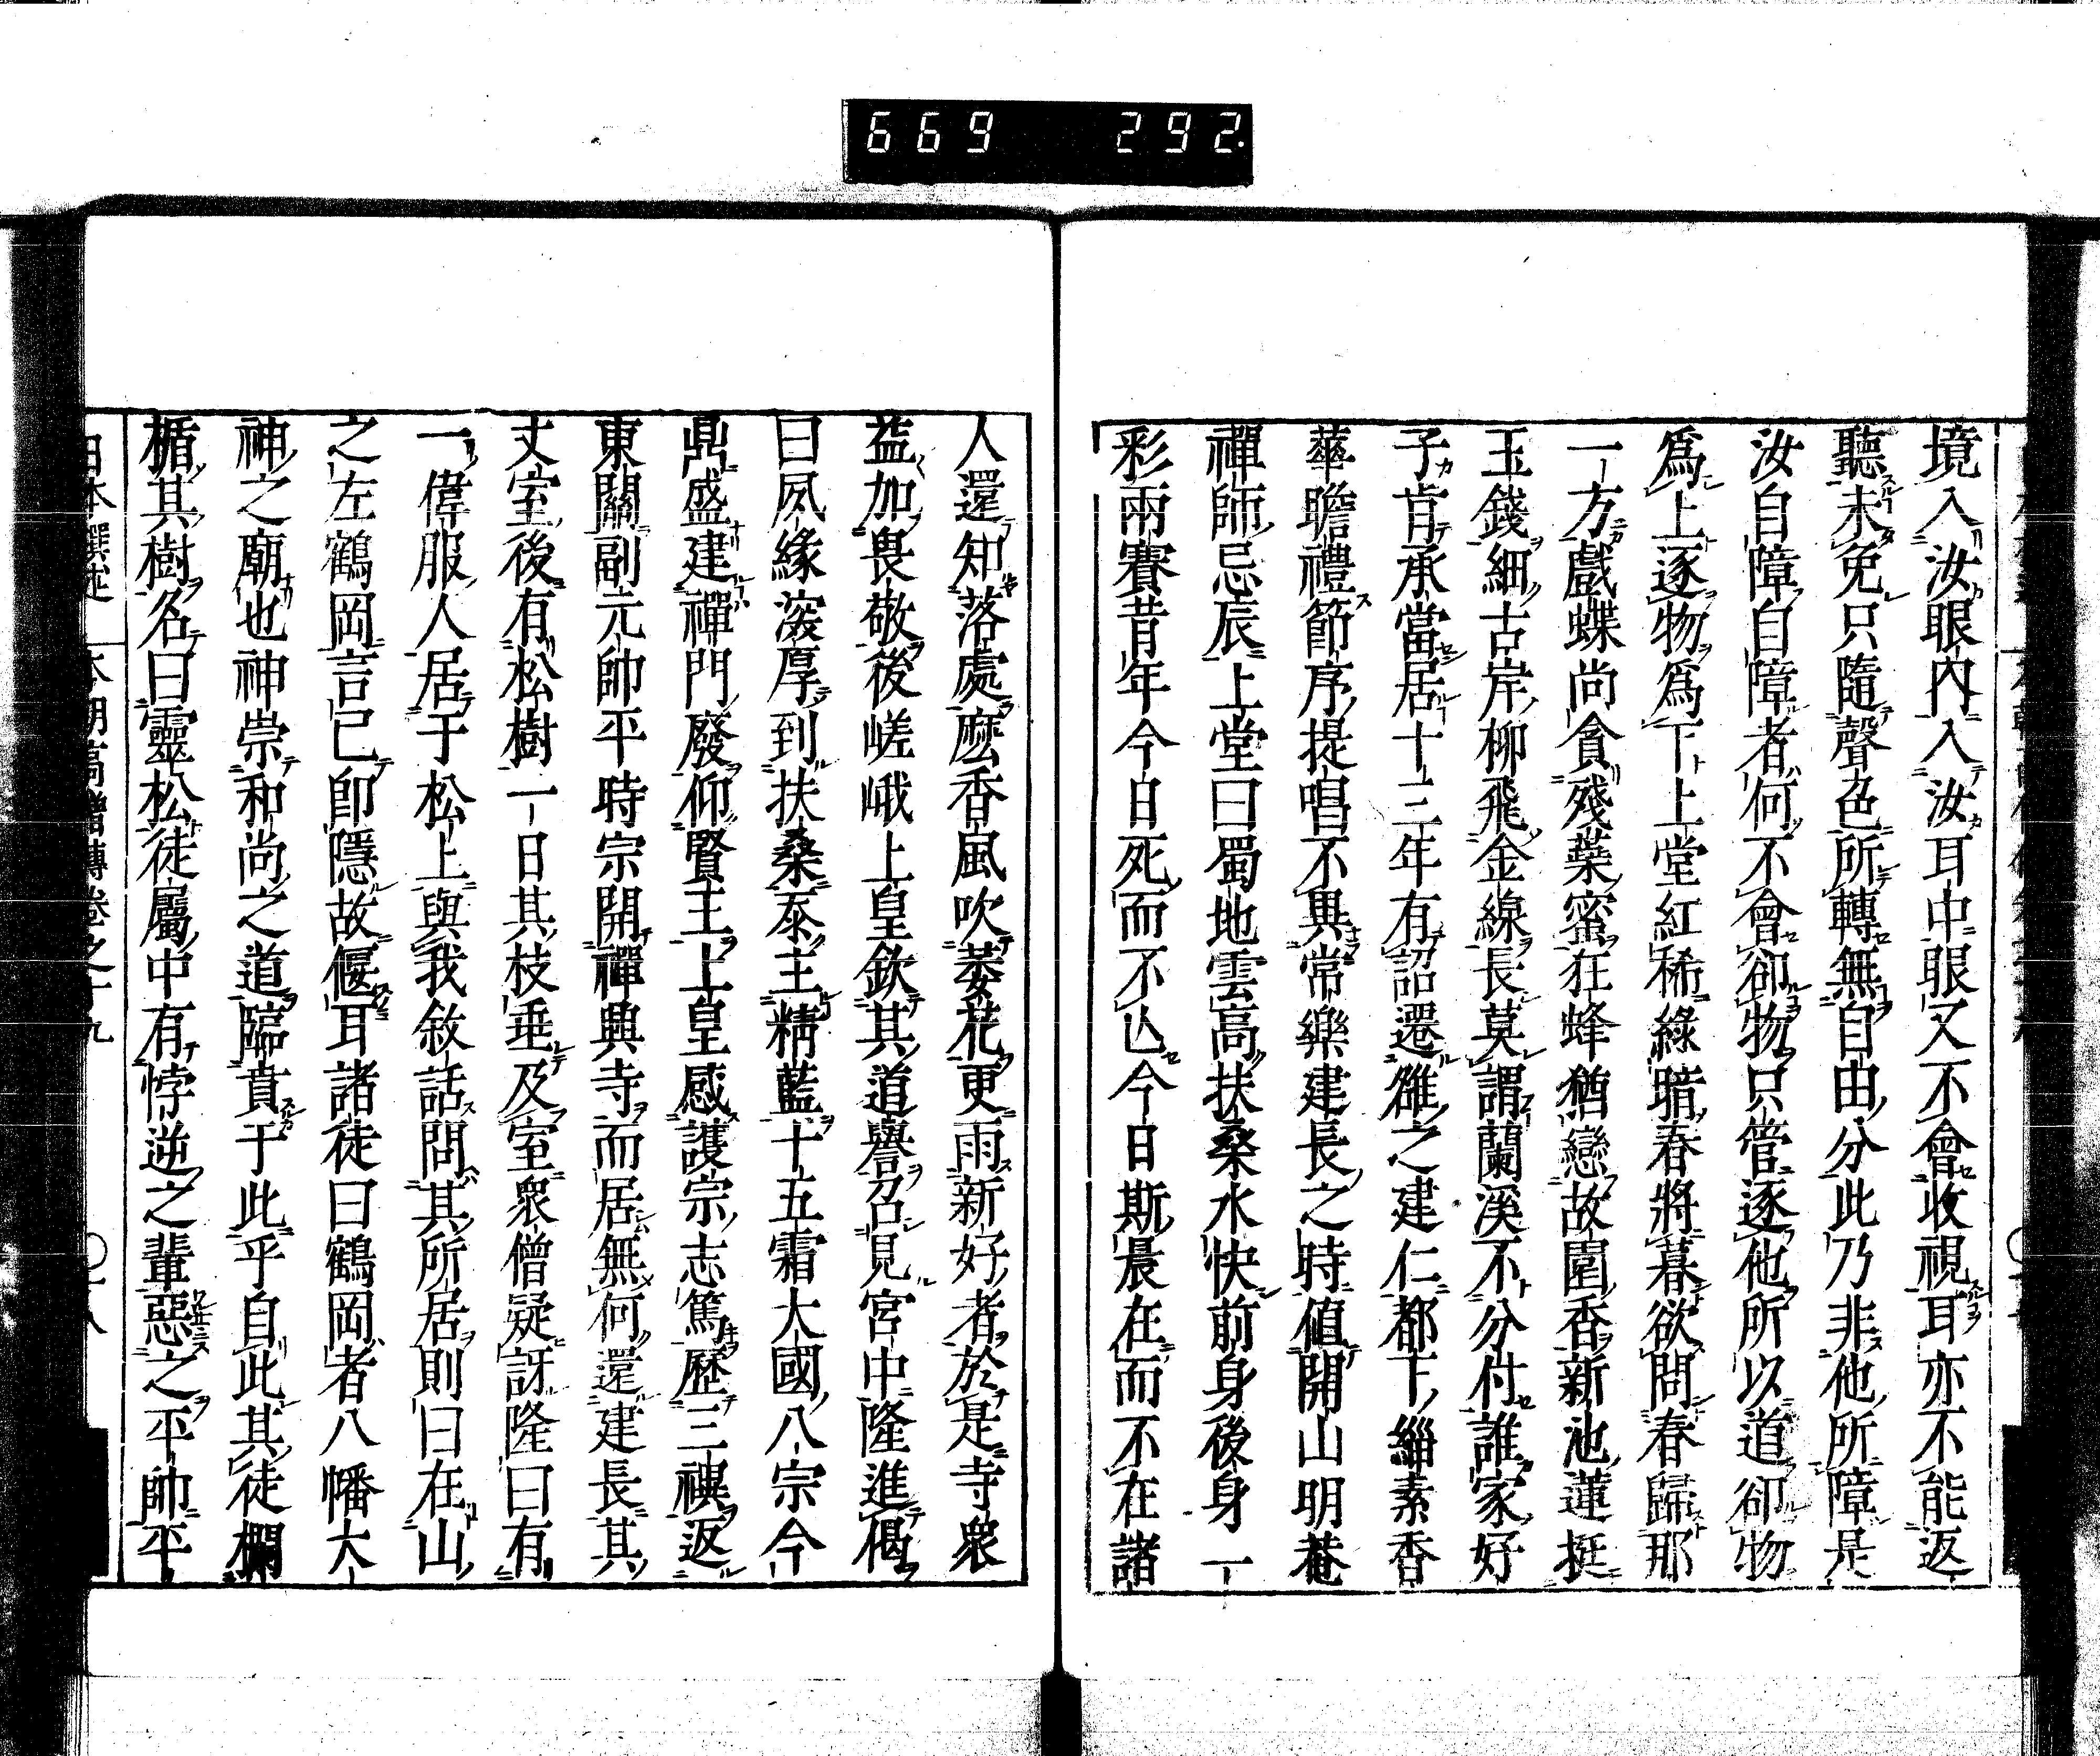 669 292
境入汝眼內入汝耳中眼又不會收視耳亦不能返
聽未免只隨聲色所轉無自由分此乃非他所障是
汝自障自障者何不會卻物只管逐他所以道卻物
爲上逐物爲下上堂紅稀綠暗春將暮欲問春歸那
一方戲蝶尚貪殘蘂蜜狂蜂猶戀故園香新池蓮挺
玉錢細古岸柳飛金線長莫謂蘭溪不分付誰家好
子肯承當居十三年有詔遷雒之建仁都下緇素香
華瞻禮節序提唱不異常樂建長之時値開山明菴
禪師忌辰上堂曰蜀地雲高扶桑水快前身後身一
彩兩賽昔年今日死而不亾今日斯晨在而不在諸
人還知落處麽香風吹萎花更雨新好者於是寺衆
益加畏敬後嵯峨上皇欽其道譽召見宮中隆進偈
曰夙緣深厚到扶桑忝主精藍十五霜大國八宗今
鼎盛建禪門廢仰賢王上皇感護宗志篤歷三禩返
東關副元帥平時宗開禪興寺而居無何還建長其
丈室後有松樹一日其枝垂及室衆僧疑訝隆曰有
一偉服人居于松上與我敘話問其所居則曰在山
之左鶴岡言已卽隱故偃耳諸徒曰鶴岡者八幡大
神之廟也神崇和尚之道臨賁于此乎自此其徒欄
楯其樹名曰靈松徒屬中有悖逆之輩惡之平帥平
日本撰述 本朝高僧傳卷之十九 〇十八